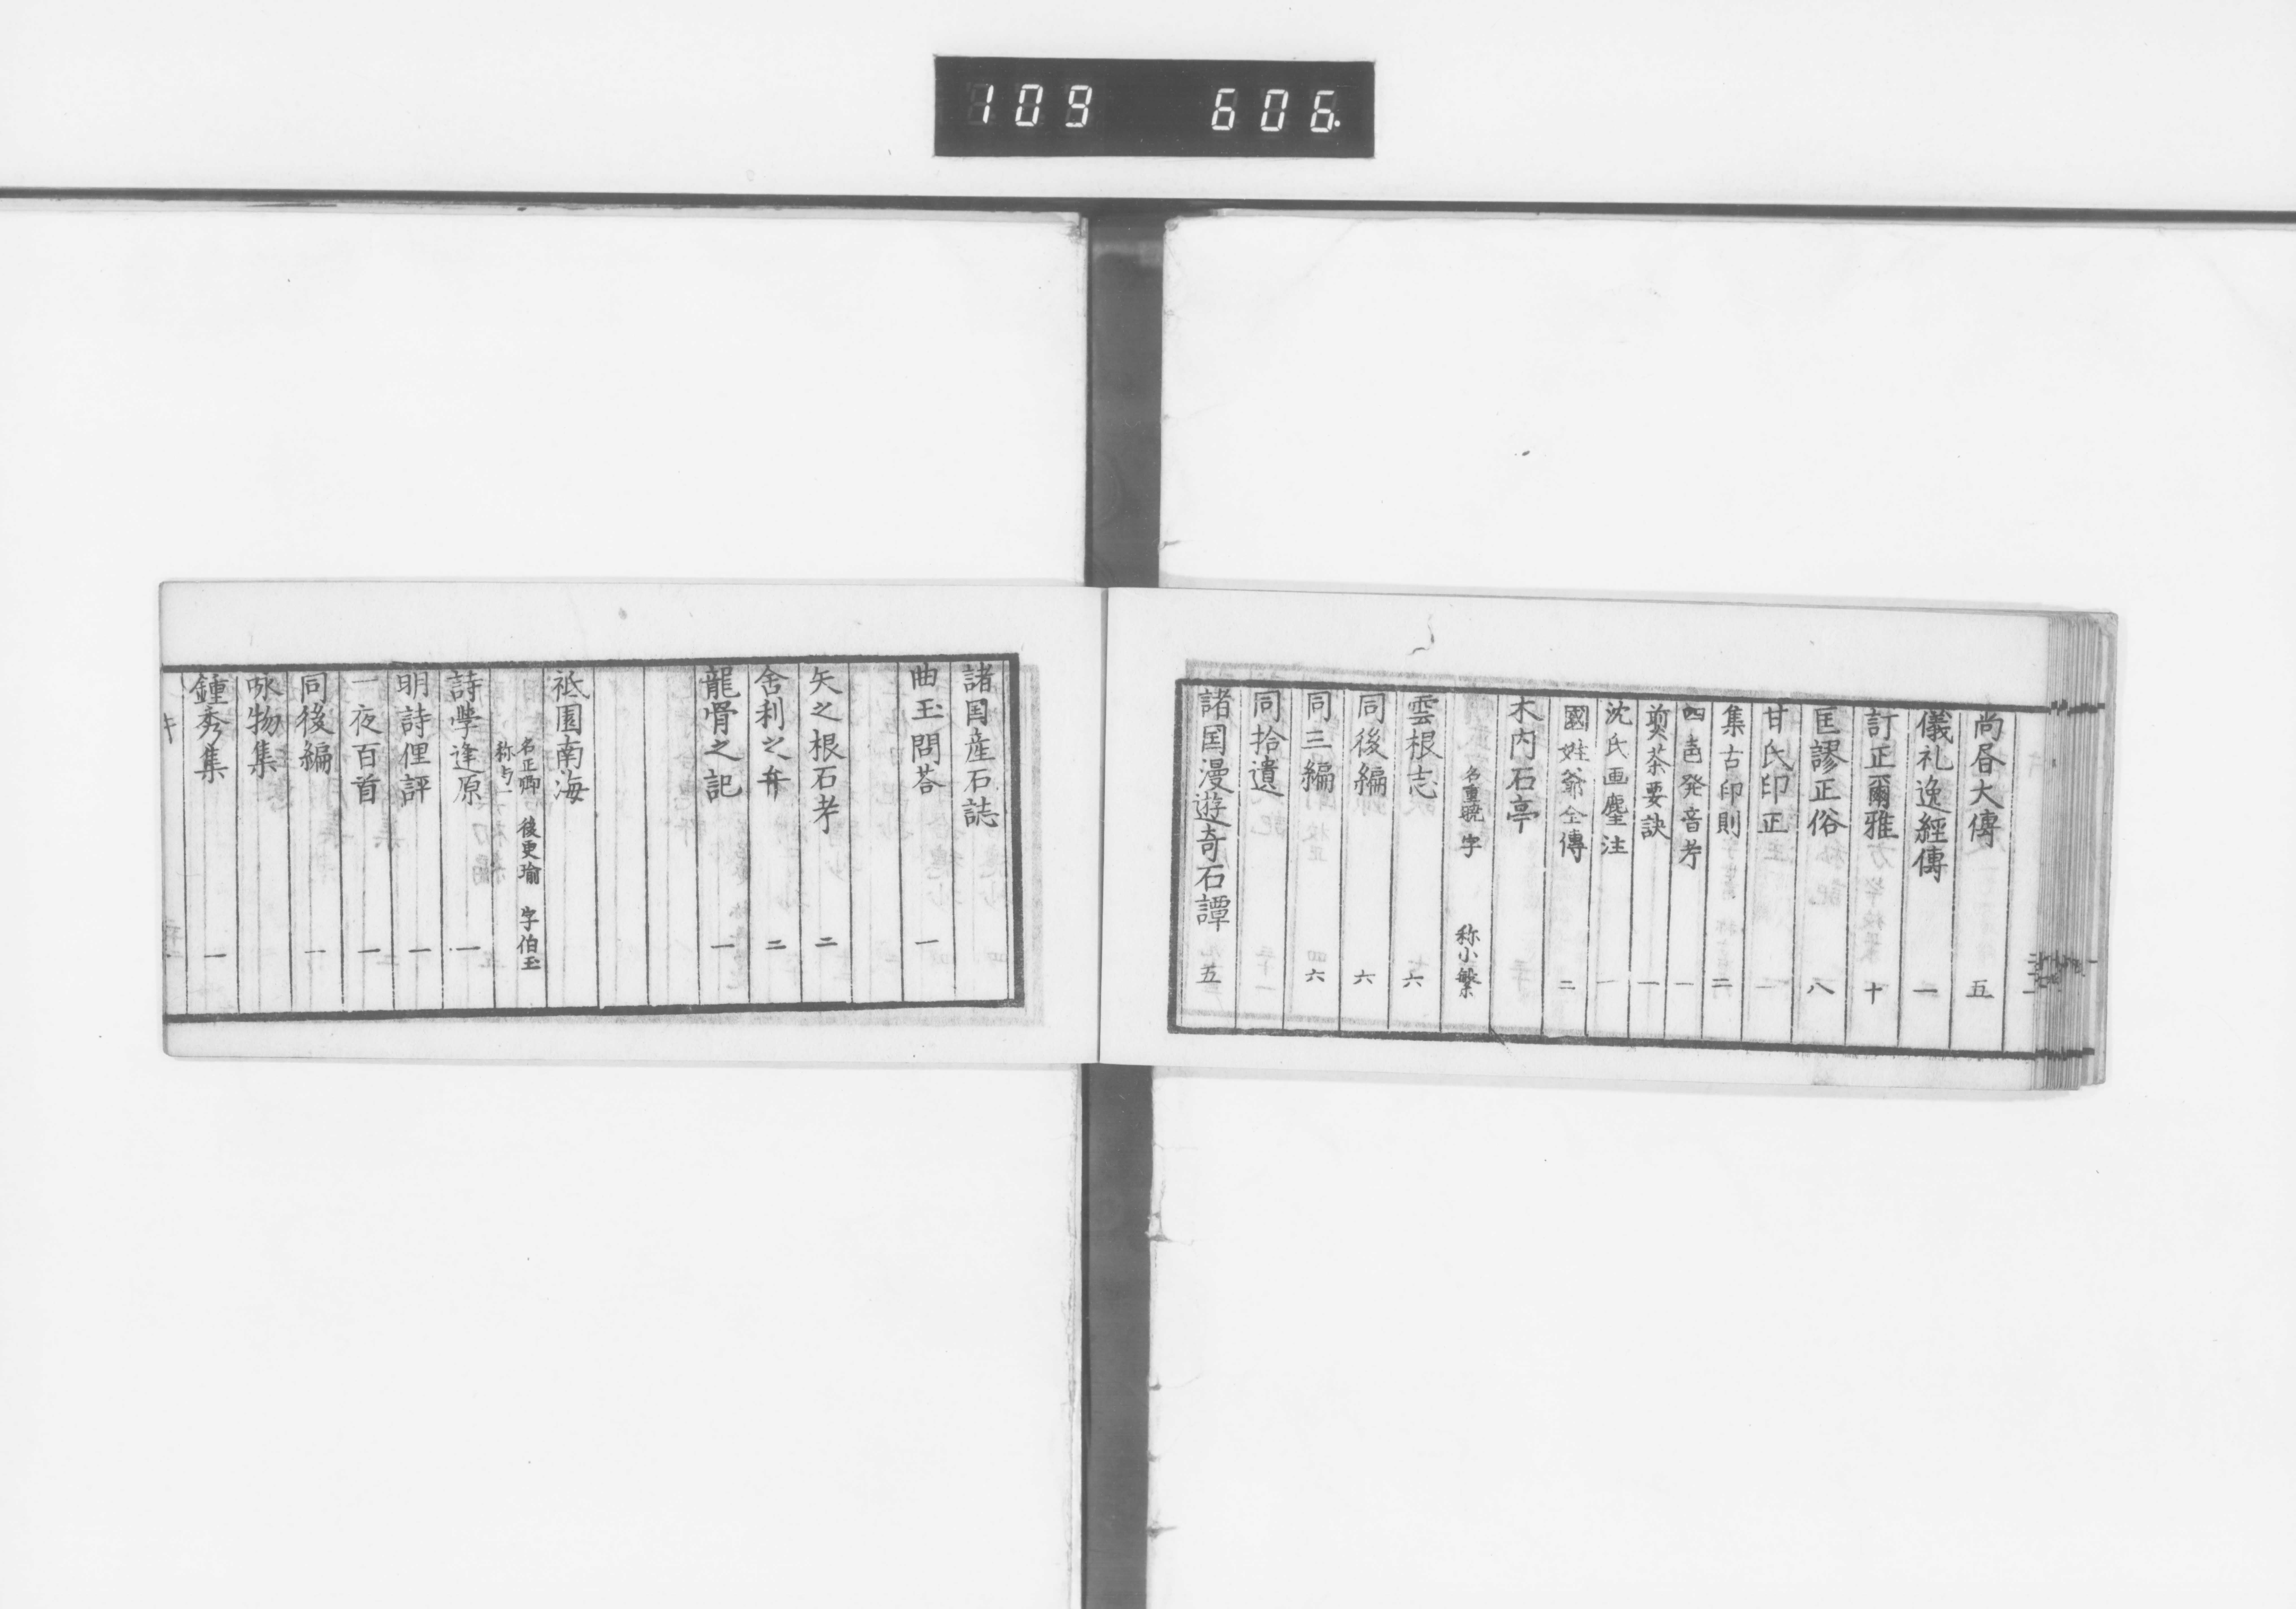 109 606.
尚㫺大傳 五
儀礼逸經傳 一
訂正爾雅 十
匡謬正俗 八
甘氏印正 一
集古印則 二
四声発音考 一
煎茶要訣 一
沈氏画麈注 一
國姓爺全傳 二
木内石亭
名重暁 字 称小繁
雲根志 六
同後編 六
同三編 六
同拾遺
諸国漫遊奇石譚 五
諸国産石誌
曲玉問荅 一
矢之根石考 二
舍利之弁 二
龍骨之記 一
祇園南海
名正卿 後更瑜 字伯玉
称与一
詩學逢原 一
明詩俚評 一
一夜百首 一
同後編 一
咏物集
鍾秀集 一
キ